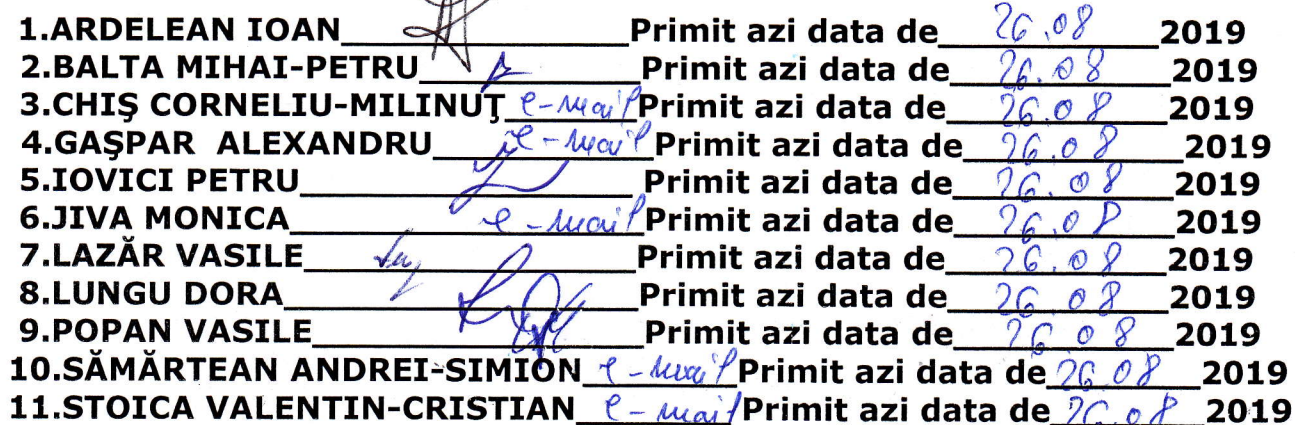 1.ARDELEAN IOAN Primit azi data de 26.08 2019
2.BALTA MIHAI-PETRU Primit azi data de 26.08 2019
3.CHIŞ CORNELIU-MILINUŢ e-mail Primit azi data de 26.08 2019
4.GAŞPAR ALEXANDRU e-mail Primit azi data de 26.08 2019
5.IOVICI PETRU Primit azi data de 26.08 2019
6.JIVA MONICA e-mail Primit azi data de 26.08 2019
7.LAZĂR VASILE Primit azi data de 26.08 2019
8.LUNGU DORA Primit azi data de 26 08 2019
9.POPAN VASILE Primit azi data de 26 08 2019
10.SĂMĂRTEAN ANDREI-SIMION e-mail Primit azi data de 26.08 2019
11.STOICA VALENTIN-CRISTIAN e-mail Primit azi data de 26.08 2019